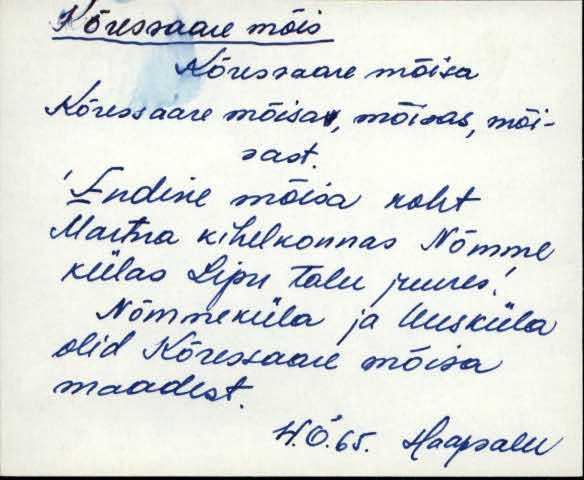 Kõressaare mõis
Kõressaare mõisa
Kõressaare mõisas, mõisas, mõi-
sast.
'Endine mõisa koht
Martna kihelkonnas Nõmme
külas Lipu talu juures.'
Nõmmeküla ja Uusküla
olid Kõressaare mõisa
maadest.
H.Õ. 65. Haapsalu